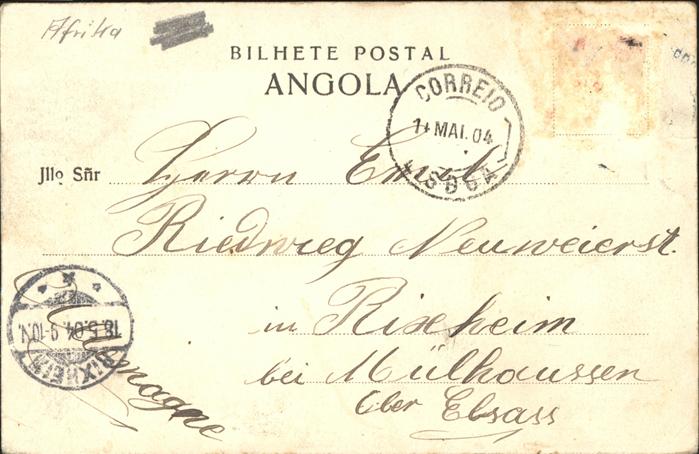 Afrika
BILHETE POSTAL
ANGOLA
CORREIO
14 MAI. 04
LISBOA
Jllo Sñr Herrn Emil
Riedwieg Neuweierst.
in Rixheim
bei Mülhaussen
Ober Elsass
18.5.04 9-10.N.
RIXHEIM
Allemagne